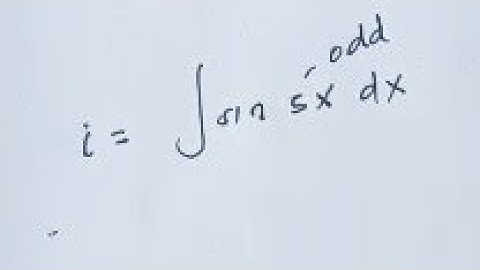 odd
i = ∫ sin 5x dx